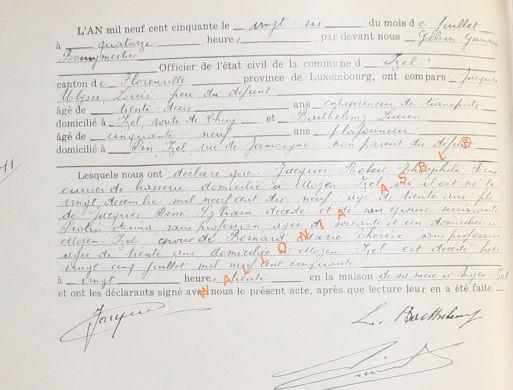 L'AN mil neuf cent cinquante le vingt six du mois de juillet
à quatorze heures par devant nous
Bourgmestre
Officier de l'état civil de la commune d' Izel
canton de Florenville province de Luxembourg, ont comparu Jacques
Ulysse, Louis, frère du défunt
âgé de trente-deux ans entrepreneur de transports
domicilié à Izel route de Chiny et Barthelemy Lucien
âgé de cinquante-neuf ans plafonneur
domicilié à Pin, Izel rue de Jamoigne, non parent du défunt
11.
Lesquels nous ont déclaré que Jacques Robert Théophile René
ouvrier de domicilié à Moyen Izel où il est né le
vingt décembre mil neuf cent dix neuf âgé de trente ans fils
de Jacques René décédé et de son épouse survivante
sans profession âgée de soixante et un domiciliée à
Moyen Izel, époux de Bernard Marie Thérèse sans profession
âgée de trente ans, domiciliée à Moyen Izel est décédé hier
vingt-cinq juillet mil neuf cent cinquante
à vingt heures trente en la maison de sa mère à Moyen-Izel
et ont les déclarants signé avec nous le présent acte, après que lecture leur en a été faite.
Jacques
L. Barthelemy
WALLONIA ASBL ®